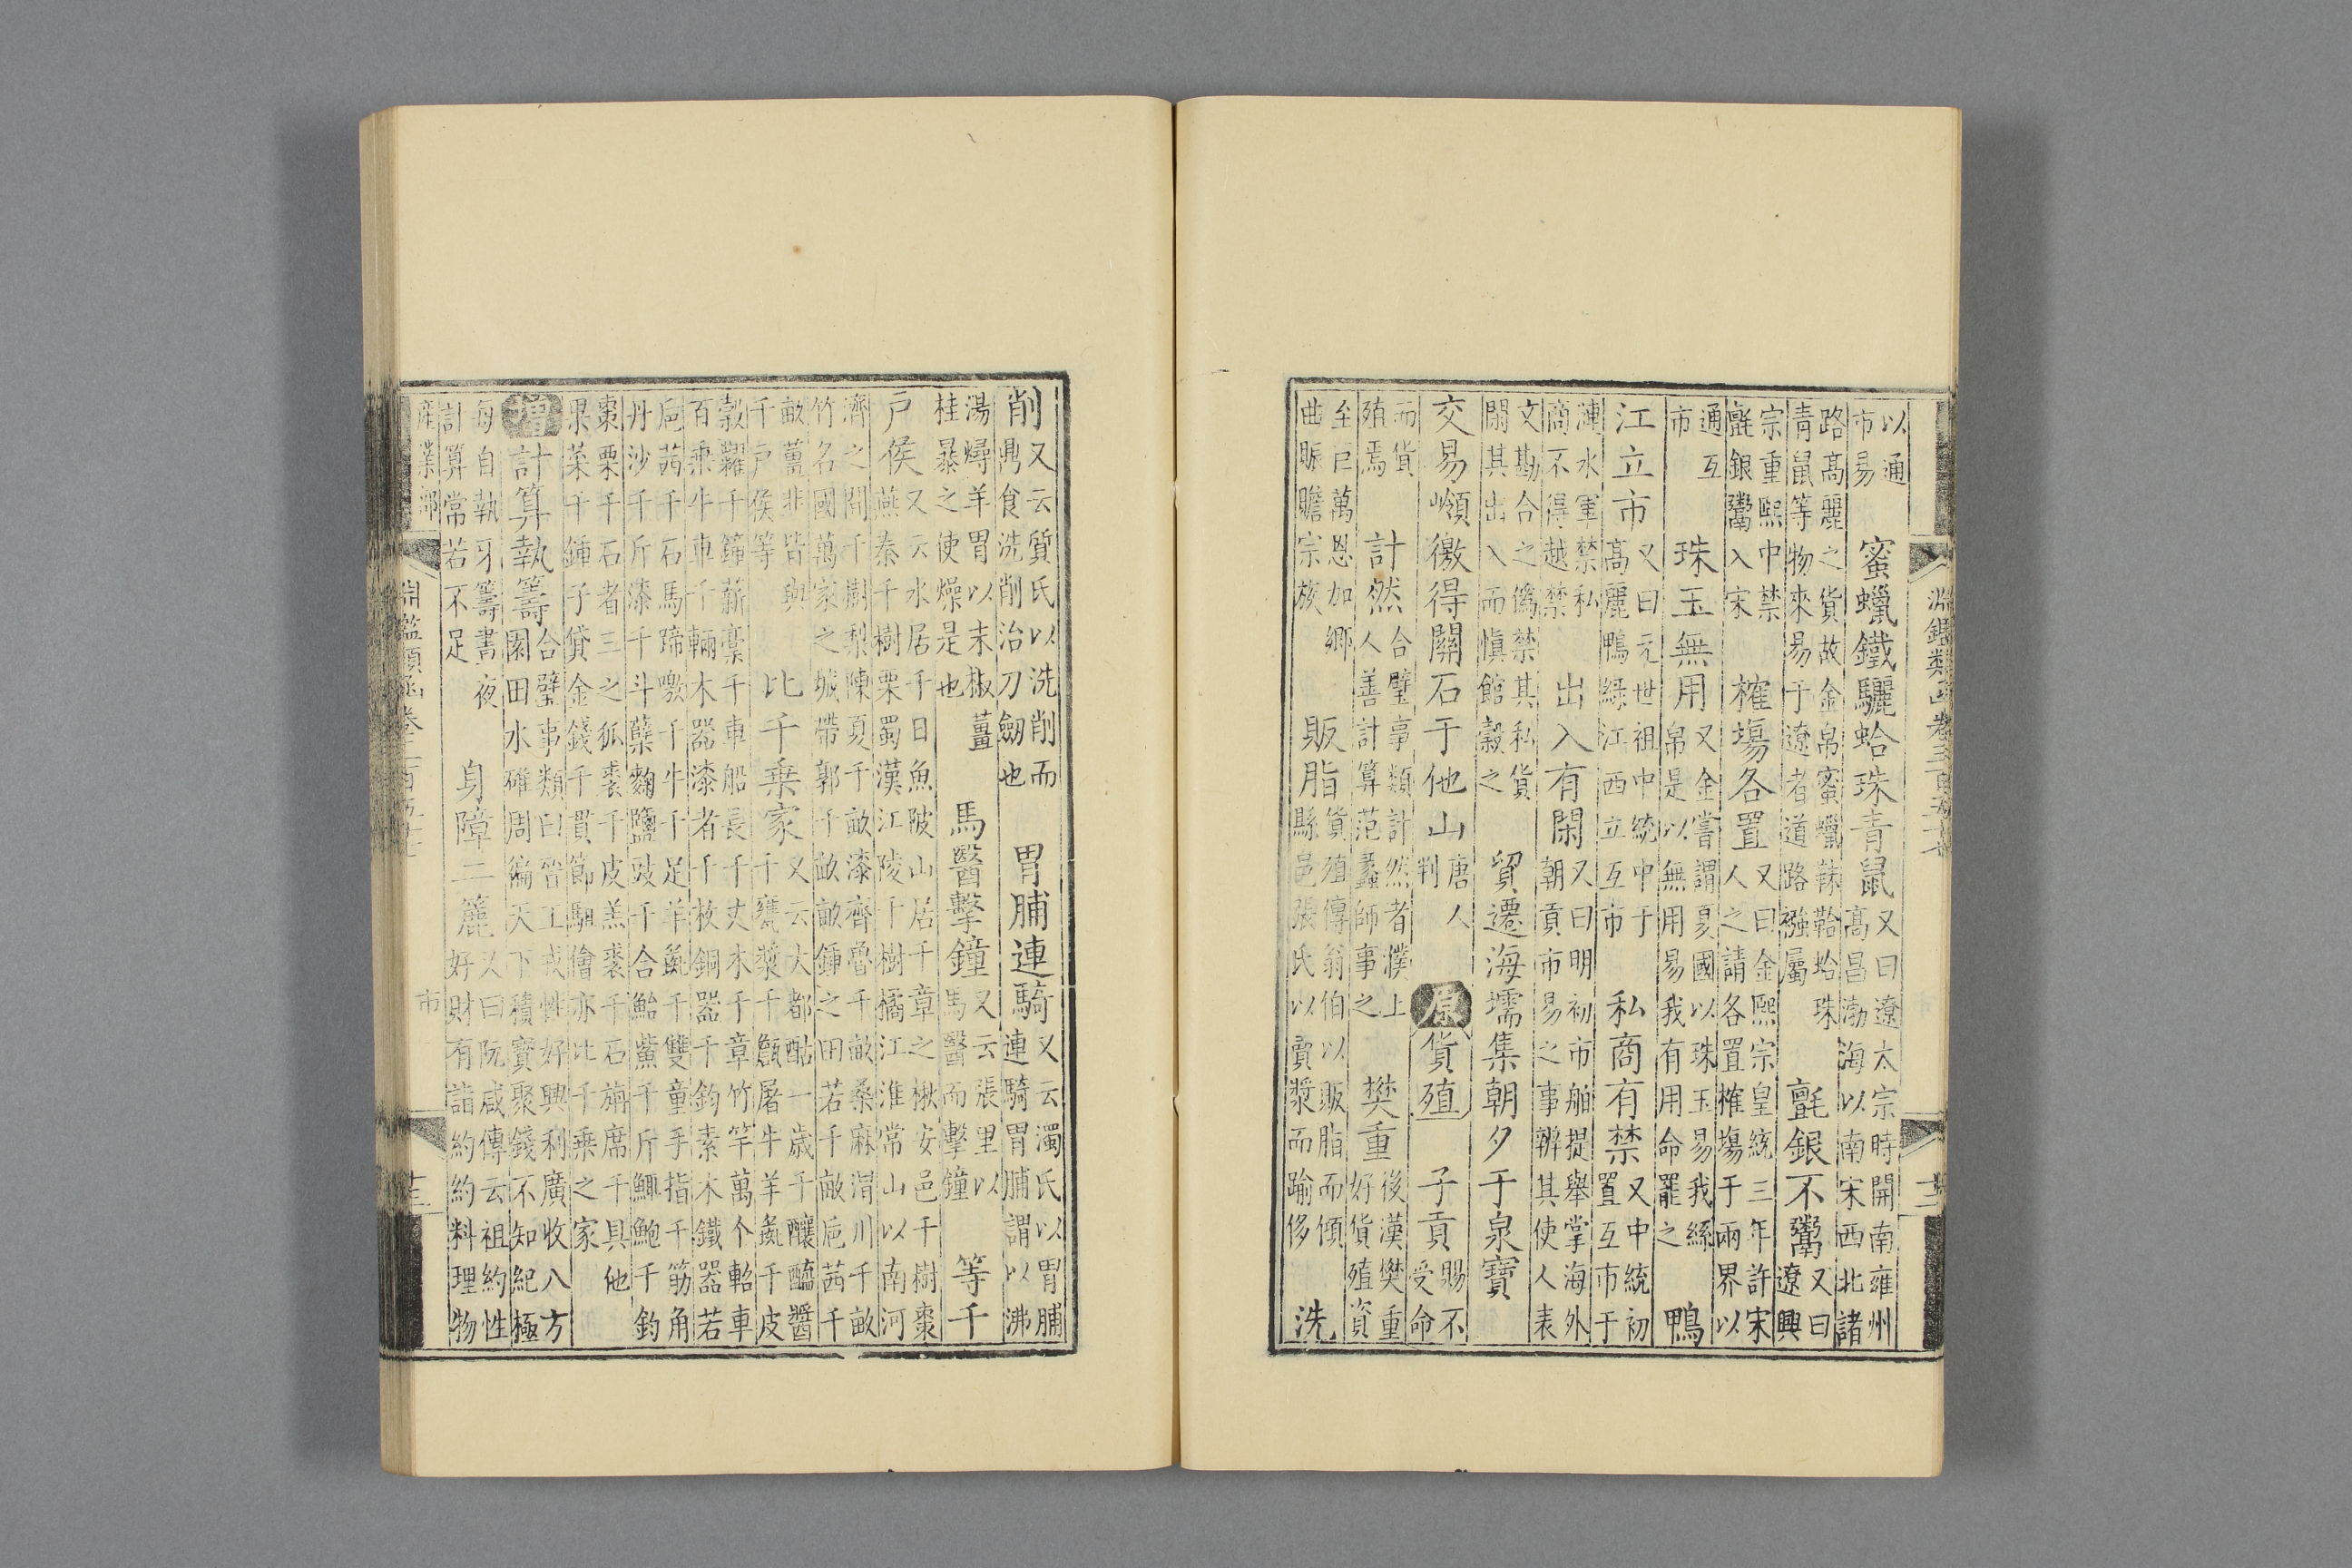 淵鑑類函卷三百五十七
十二
以通
市易
蜜蠟鐵驪蛤珠青鼠
又曰遼太宗時開南雍州
高昌渤海以南宋西北諸
路高麗之貨故金帛蜜蠟韎鞈蛤珠
青鼠等物來易于遼者道路襁屬
氈銀不鬻
又曰
遼興
宗重熙中禁
氈銀鬻入宋
榷塲各置
又曰金熙宗皇統三年許宋
人之請各置榷塲于兩界以
通互
市
珠玉無用
又金嘗謂夏國以珠玉易我絲
帛是以無用易我有用命罷之
鴨
江立市
又曰元世祖中統中于
高麗鴨綠江西立互市
私商有禁
又中統初
置互市于
漣水軍禁私
商不得越禁
出入有閑
又曰明初市舶提舉掌海外
朝貢市易之事辨其使人表
文勘合之僞禁其私貨
閑其出入而慎館穀之
貿遷海壖集朝夕于泉寶
交易嶺徼得關石于他山
唐人
判
原
貨殖
子貢
賜不
受命
而貨
殖焉
計然
合璧事類計然者濮上
人善計算范蠡師事之
樊重
後漢樊重
好貨殖資
至巨萬恩加鄉
曲賑贍宗族
販脂
貨殖傳翁伯以販脂而傾
縣邑張氏以賣漿而踰侈
洗
削
又云質氏以洗削而
鼎食洗削治刀劒也
胃脯連騎
又云濁氏以胃脯
連騎胃脯謂以沸
湯燖羊胃以末椒薑
桂暴之使燥是也
馬醫擊鐘
又云張里以
馬醫而擊鐘
等千
戶侯
又云水居千日魚陂山居千章之楸安邑千樹棗
燕秦千樹栗蜀漢江陵千樹橘江淮常山以南河
濟之間千樹梨陳夏千畝漆齊魯千畝桑麻渭川千畝
竹名國萬家之城帶郭千畝畝鍾之田若千畝巵茜千
畝薑韭皆與
千戶侯等
比千乗家
又云大都酤一歲千釀醯醬
千甕漿千甔屠牛羊彘千皮
穀糴千鍾薪藁千車船長千丈木千章竹竿萬个軺車
百乘牛車千輛木器漆者千枚銅器千鈞素木鐵器若
巵茜千石馬蹄噭千牛千足羊彘千雙童手指千筋角
丹沙千斤漆千斗糵麴鹽豉千合鮐鮆千斤鯫鮑千鈞
棗栗千石者三之狐裘千皮羔裘千石旃席千具他
果菜千鍾子貸金錢千貫節駔儈亦比千乗之家
增
計算執籌
合璧事類曰晉王戎性好興利廣收八方
園田水碓周徧天下積實聚錢不知紀極
每自執牙籌書夜
計算常若不足
身障二簏
又曰阮咸傳云祖約性
好財有詣約約料理物
產業部
市
淵鑑類函卷三百五十七
十三